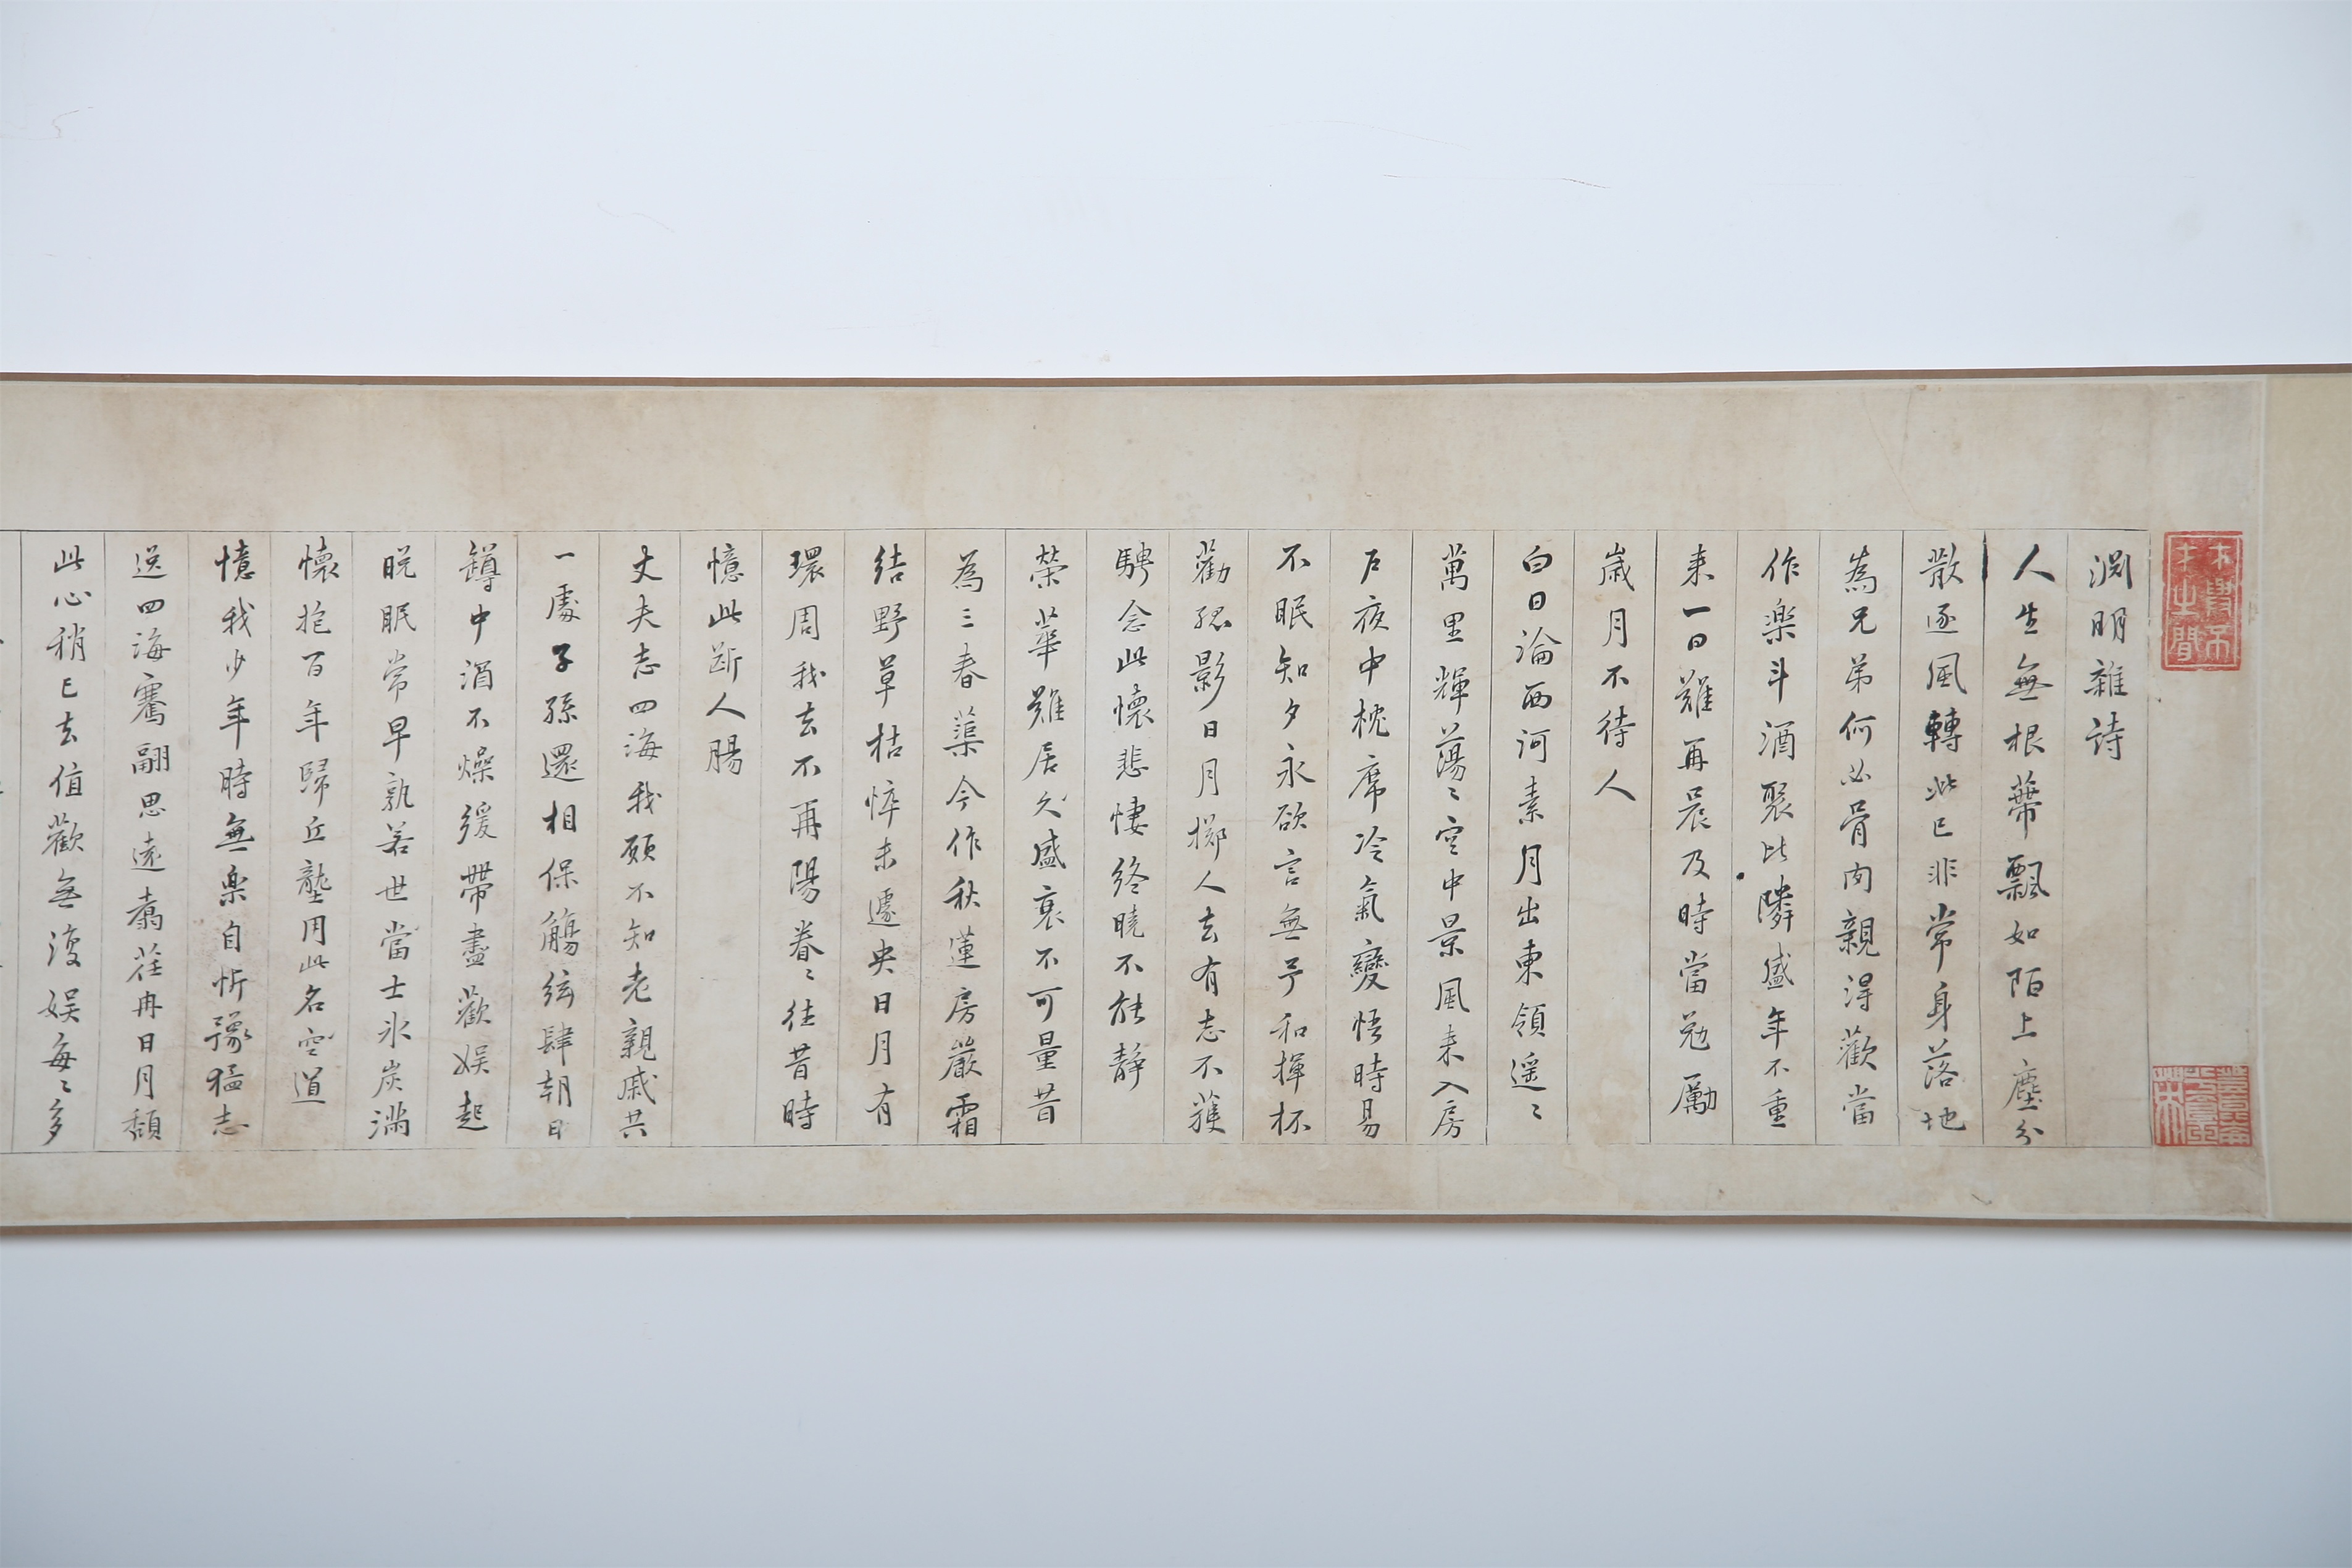 淵明雜詩
人生無根蒂飄如陌上塵分
散逐風轉此已非常身落地
為兄弟何必骨肉親得歡當
作樂斗酒聚比隣盛年不重
来一日難再晨及時當勉勵
歲月不待人
白日淪西河素月出東領遥〻
萬里輝蕩〻空中景風来入房
戶夜中枕席冷氣變悟時易
不眠知夕永欲言無予和揮杯
勸孤影日月擲人去有志不獲
騁念此懷悲悽終曉不能靜
榮華難居久盛衰不可量昔
為三春蕖今作秋蓮房嚴霜
結野草枯悴未遽央日月有
環周我去不再陽眷〻往昔時
憶此斷人腸
丈夫志四海我願不知老親戚共
一處子孫還相保觴絃肆朝日
罇中酒不燥緩帶盡歡娱起
晚眠常早孰若世當士氷炭滿
懷抱百年歸丘壟用此名空道
憶我少年時無樂自忻豫猛志
逸四海騫翮思遠翥荏冉日月頹
此心稍已去值歡無復娱每〻多